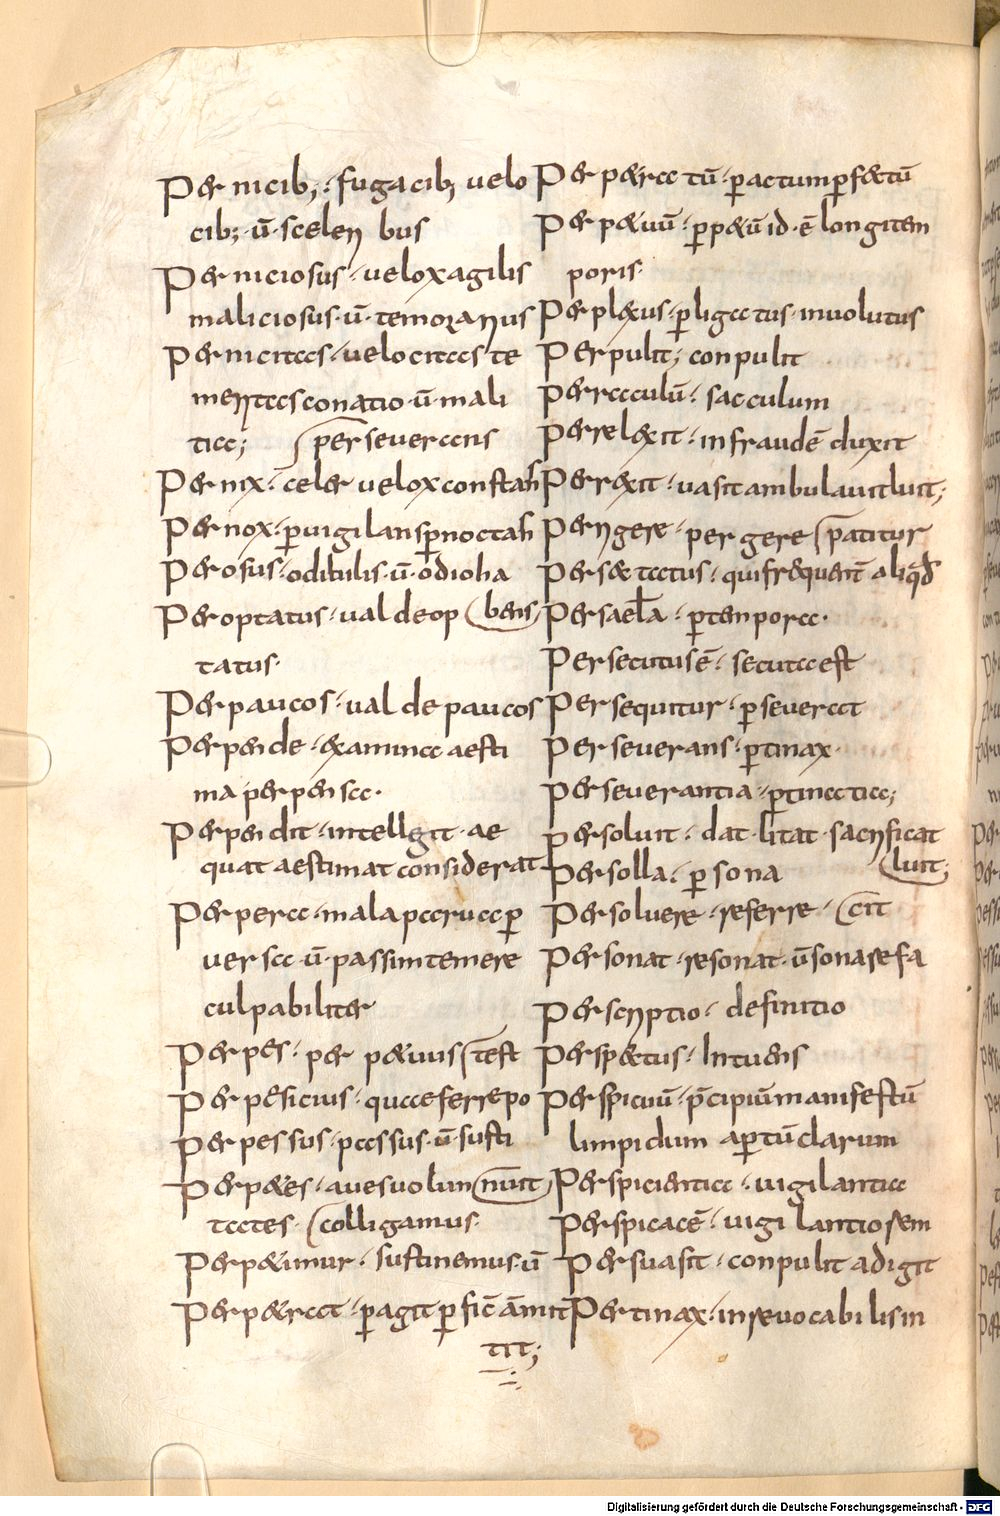 Per nicib; · fugacib; velo
cib; · ū · sceleri bus
Per niciosus · velox agilis
maliciosus · ū · temorarius
Per nicitas · velocitas te
meritas conatio · ū · mali
tia; perseverans
Per nix · celer velox constan
Per nox · ꝑvigilans ꝑnoctan
Perosus · oditulis · ū · odioha
Peroptatus · val de op bens
tatus ·
Per paucos · val de paucos
Perpende · examina aesti
ma perpensa ·
Perpendit · intellegit · ae
quat aestimat considerat
Per pera · mala parua ꝑ
uersa · ū · passim temere
culpabiliter
Per pes · per petuus test
Per pesicius · quae ferrepo
Per pessus · passus · ū · susti
Perpetes · aues uolun nunt
tates · colligamus ·
Perpetimur · sustinemus · ū
Perpetrat · ꝑagit ꝑficē amit
tit;
Per petra tū · ꝑactum ꝑfectū
Per petuū · ꝑpetuū id · ē longi tem
poris ·
Per plexus · ꝑligatus · involutus
Per pulit; conpulit
Perraculū · sacculum
Perrelexit · in fraudē duxit
Perrexit · vasit ambulavit luit;
Perrigere · per gere patitur
Persectatus · qui frequent aliqd
Persaela · ꝑtempora ·
Persecutus ē · secuta est
Per sequitur · ꝑseverat
Per severans · ꝑtinax ·
Perseverantia · ꝑtinacia;
Persoluit · dat · litat · sacrificat
luit;
Persolla · ꝑsona
Persoluere · referre ·
Personat · resonat · ū sonare fa cit
Perscriptio · definitio
Perspectus · Intuens
Perspicuū · p̄cipiūm anifestū
limpidum aꝑtū clarum
Perspicientia · vigilantia
Perspicacē · vigilantiosem
Persuasit · conpulit adigit
Pertinax · inrevocabilis in
Digitalisierung gefördert durch die Deutsche Forschungsgemeinschaft - DFG